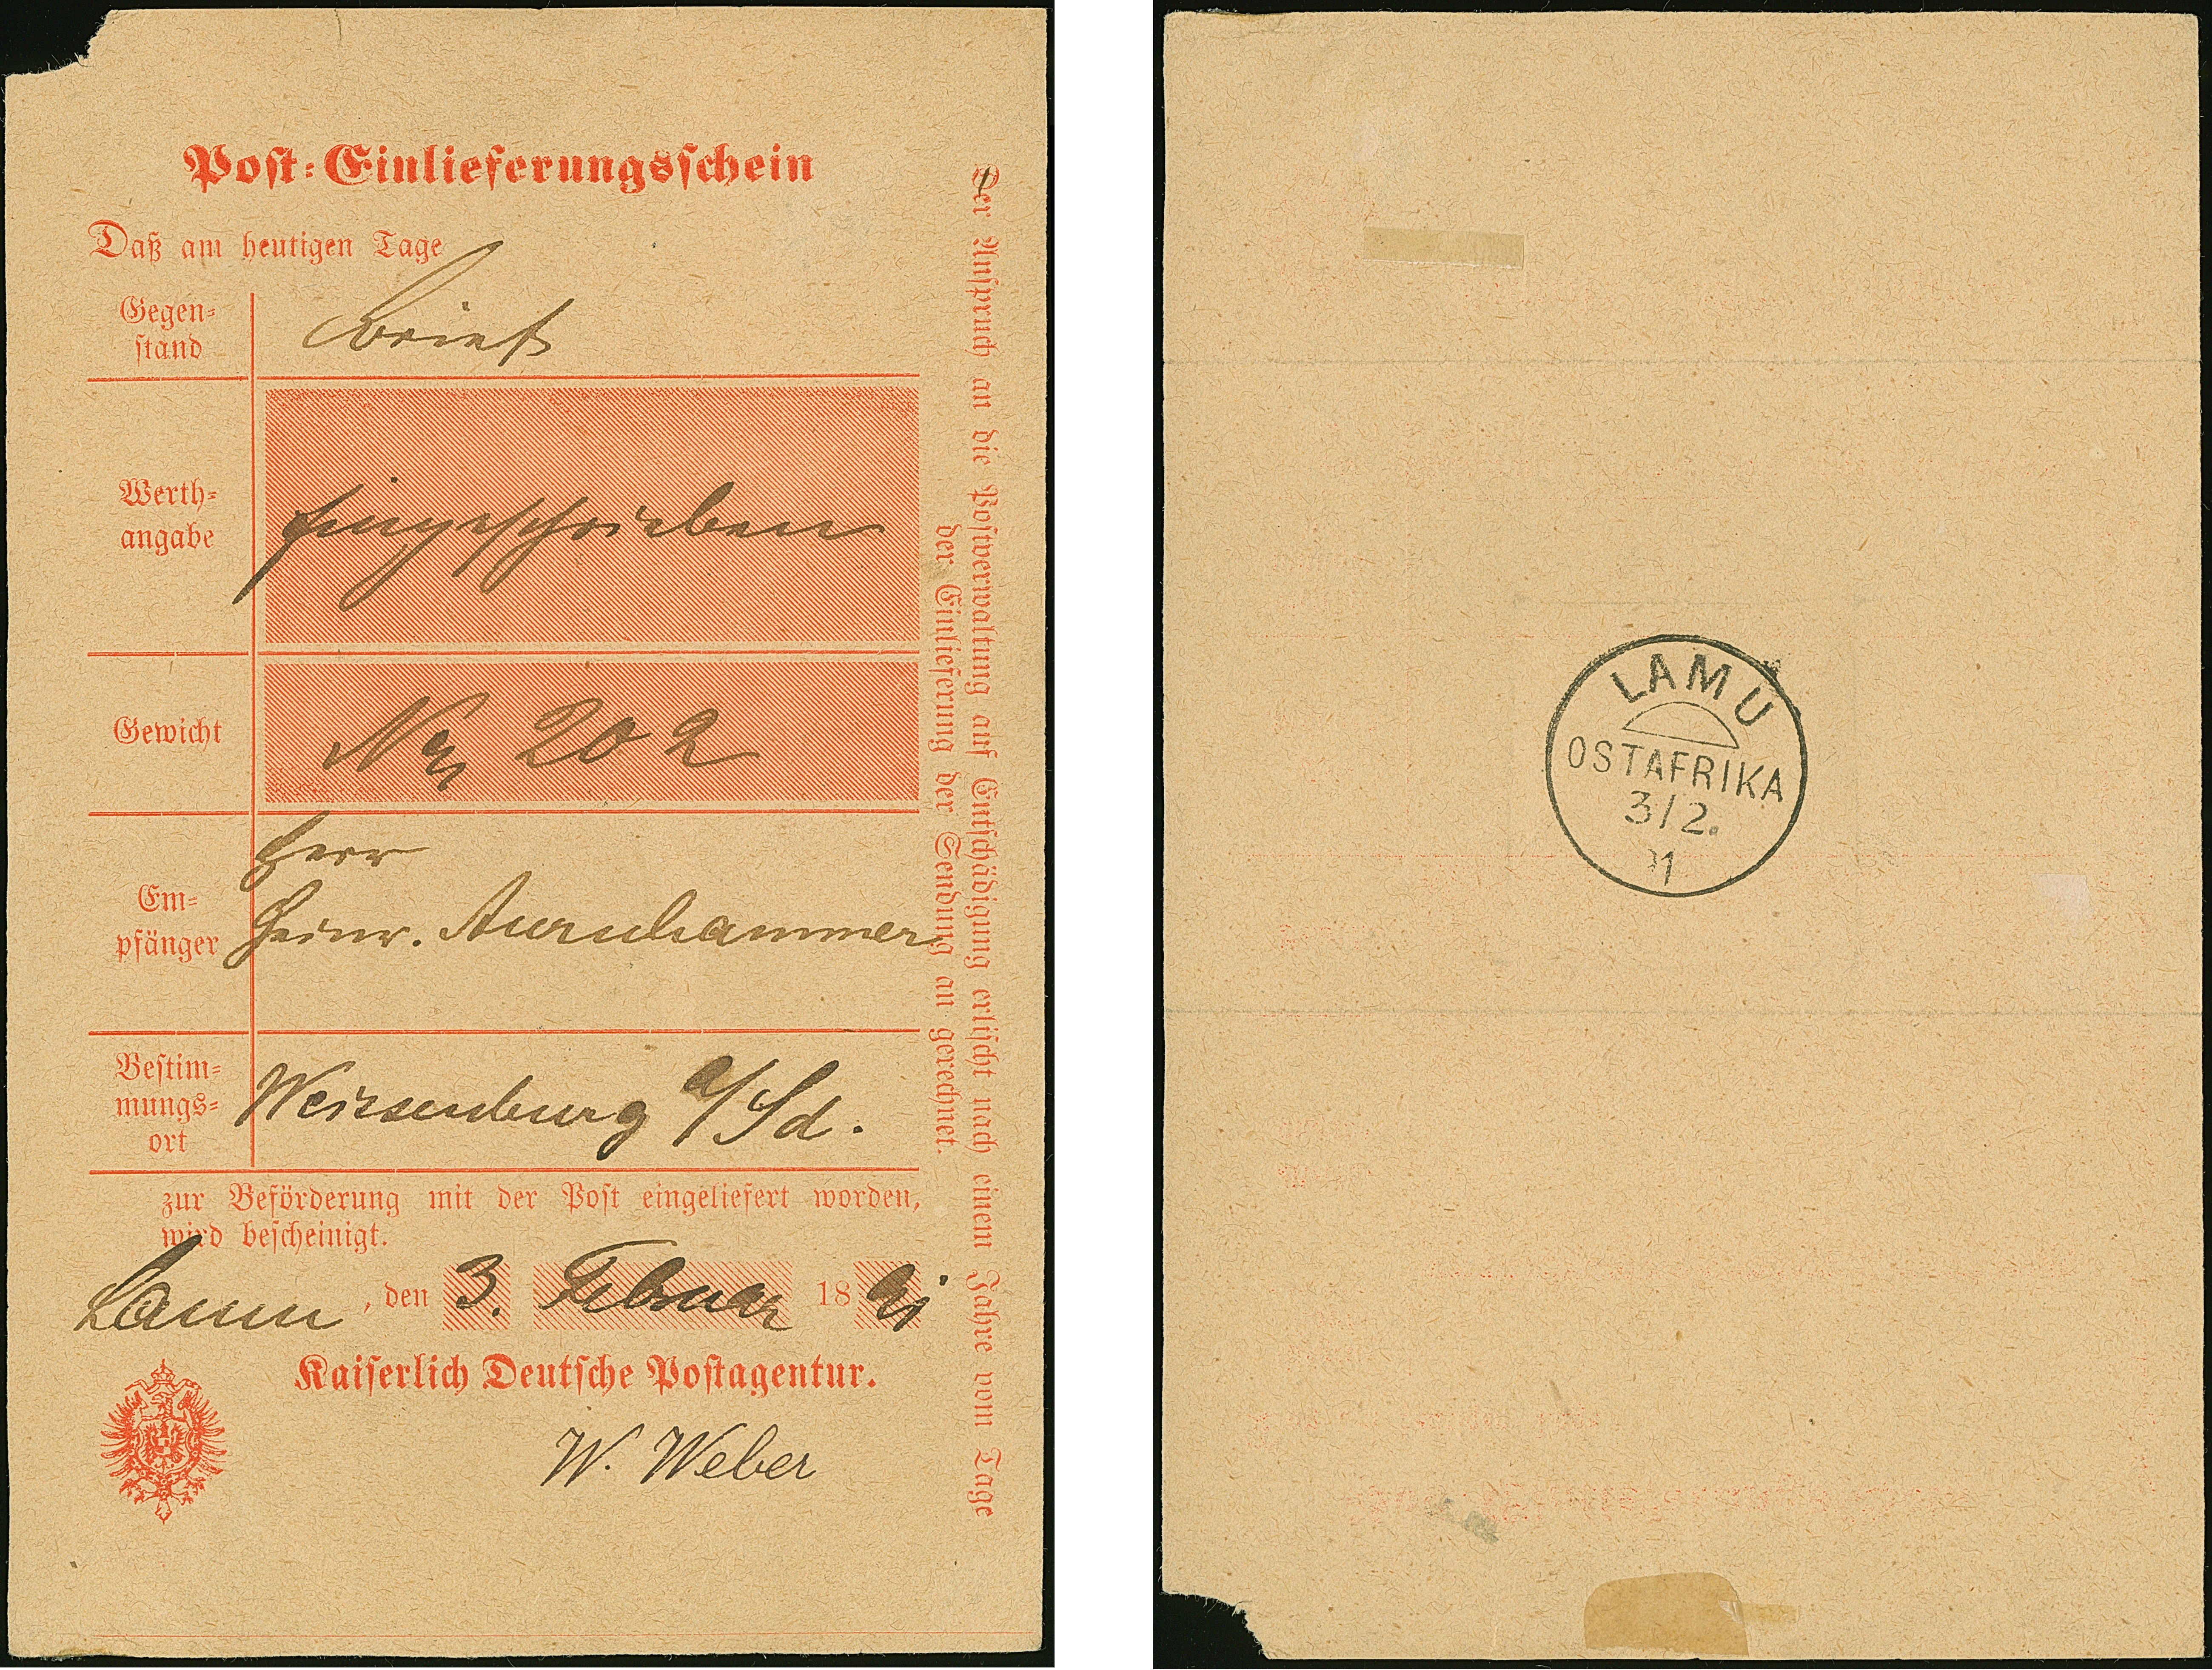 Post-Einlieferungsschein
Daß am heutigen Tage
Gegen-
stand
Brief
Werth-
angabe
Eingeschrieben
Gewicht
No 202
Em-
pfänger
Herr
Heinr. Aurnhammer
Bestim-
mungs-
ort
Weissenburg a/Sd.
zur Beförderung mit der Post eingeliefert worden,
wird bescheinigt.
Lamu, den 3. Februar 1891
Kaiserlich Deutsche Postagentur.
W. Weber
Der Anspruch an die Postverwaltung auf Entschädigung erlischt nach einem Jahre vom Tage
der Einlieferung der Sendung an gerechnet.
LAMU
OSTAFRIKA
3/2.
91